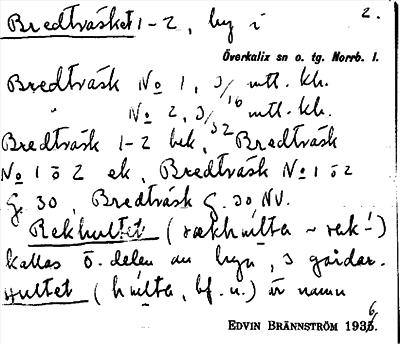 Bredträsket 1-2, by i 2.
Överkalix sn o. tg. Norrb. l.
Bredträsk No 1, 3/16 mtl. kh.
" No 2, 3/32 mtl. kh.
Bredträsk 1-2 bek, Bredträsk
No 1 o 2 ek, Bredträsk No 1 o 2
G. 30, Bredträsk G. 30 NV.
Rekhultet (
kallas ö. delen av byn, 3 gårdar.
Hultet ( bf. n.) är namn
EDVIN BRÄNNSTRÖM 1936.